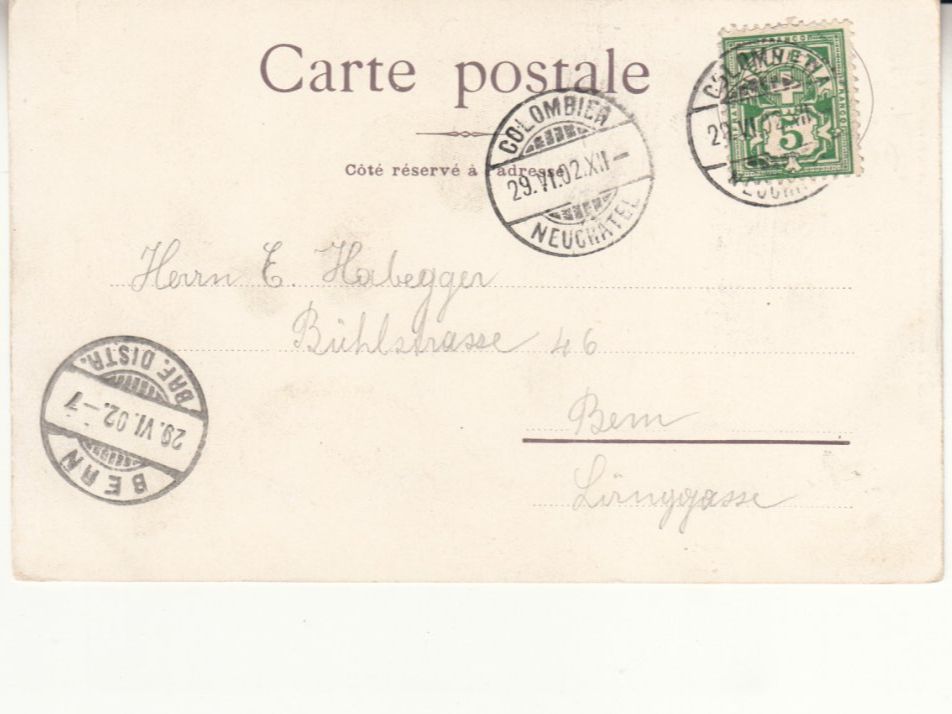 Carte postale
Côté réservé à l'adresse
COLOMBIER
29.VI.02.XII—
NEUCHATEL
FRANCO
5
29.VI.02.XII
Herrn E. Habegger
Bühlstrasse 46
Bern
Länggasse
BRF. DISTR.
29.VI.02.—7
BERN